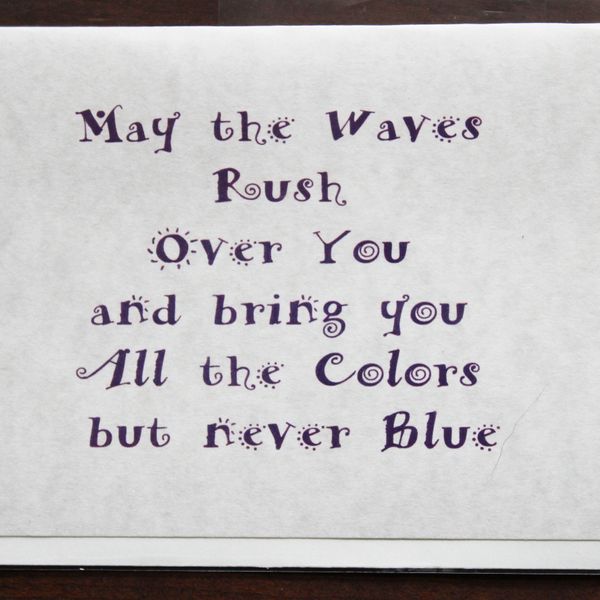 May the Waves
Rush
Over You
and bring you
All the Colors
but never Blue